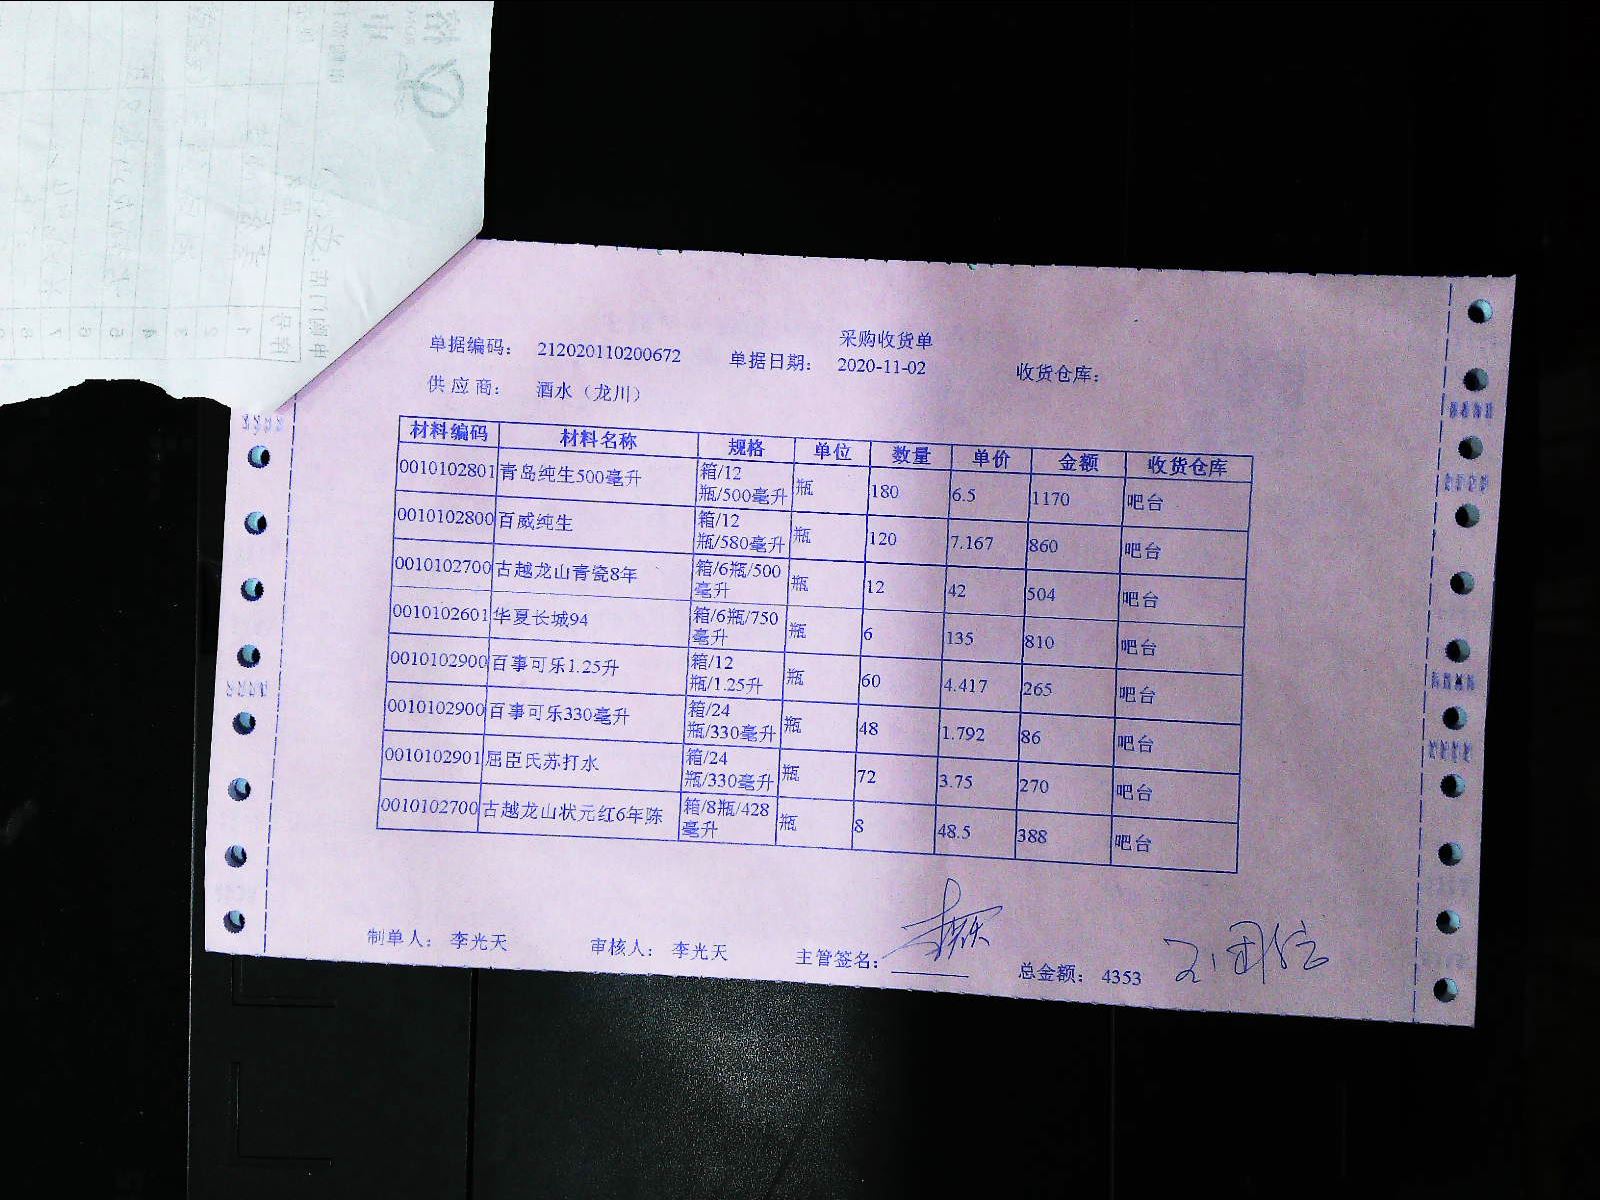 采购收货单
单据编码： 212020110200672 单据日期： 2020-11-02 收货仓库：
供应商： 酒水（龙川）
材料编码 材料名称 规格 单位 数量 单价 金额 收货仓库
0010102801 青岛纯生500毫升 箱/12瓶/500毫升 瓶 180 6.5 1170 吧台
0010102800 百威纯生 箱/12瓶/580毫升 瓶 120 7.167 860 吧台
0010102700 古越龙山青瓷8年 箱/6瓶/500毫升 瓶 12 42 504 吧台
0010102601 华夏长城94 箱/6瓶/750毫升 瓶 6 135 810 吧台
0010102900 百事可乐1.25升 箱/12瓶/1.25升 瓶 60 4.417 265 吧台
0010102900 百事可乐330毫升 箱/24瓶/330毫升 瓶 48 1.792 86 吧台
0010102901 屈臣氏苏打水 箱/24瓶/330毫升 瓶 72 3.75 270 吧台
0010102700 古越龙山状元红6年陈 箱/8瓶/428毫升 瓶 8 48.5 388 吧台
制单人： 李光天 审核人： 李光天 主管签名： 总金额： 4353